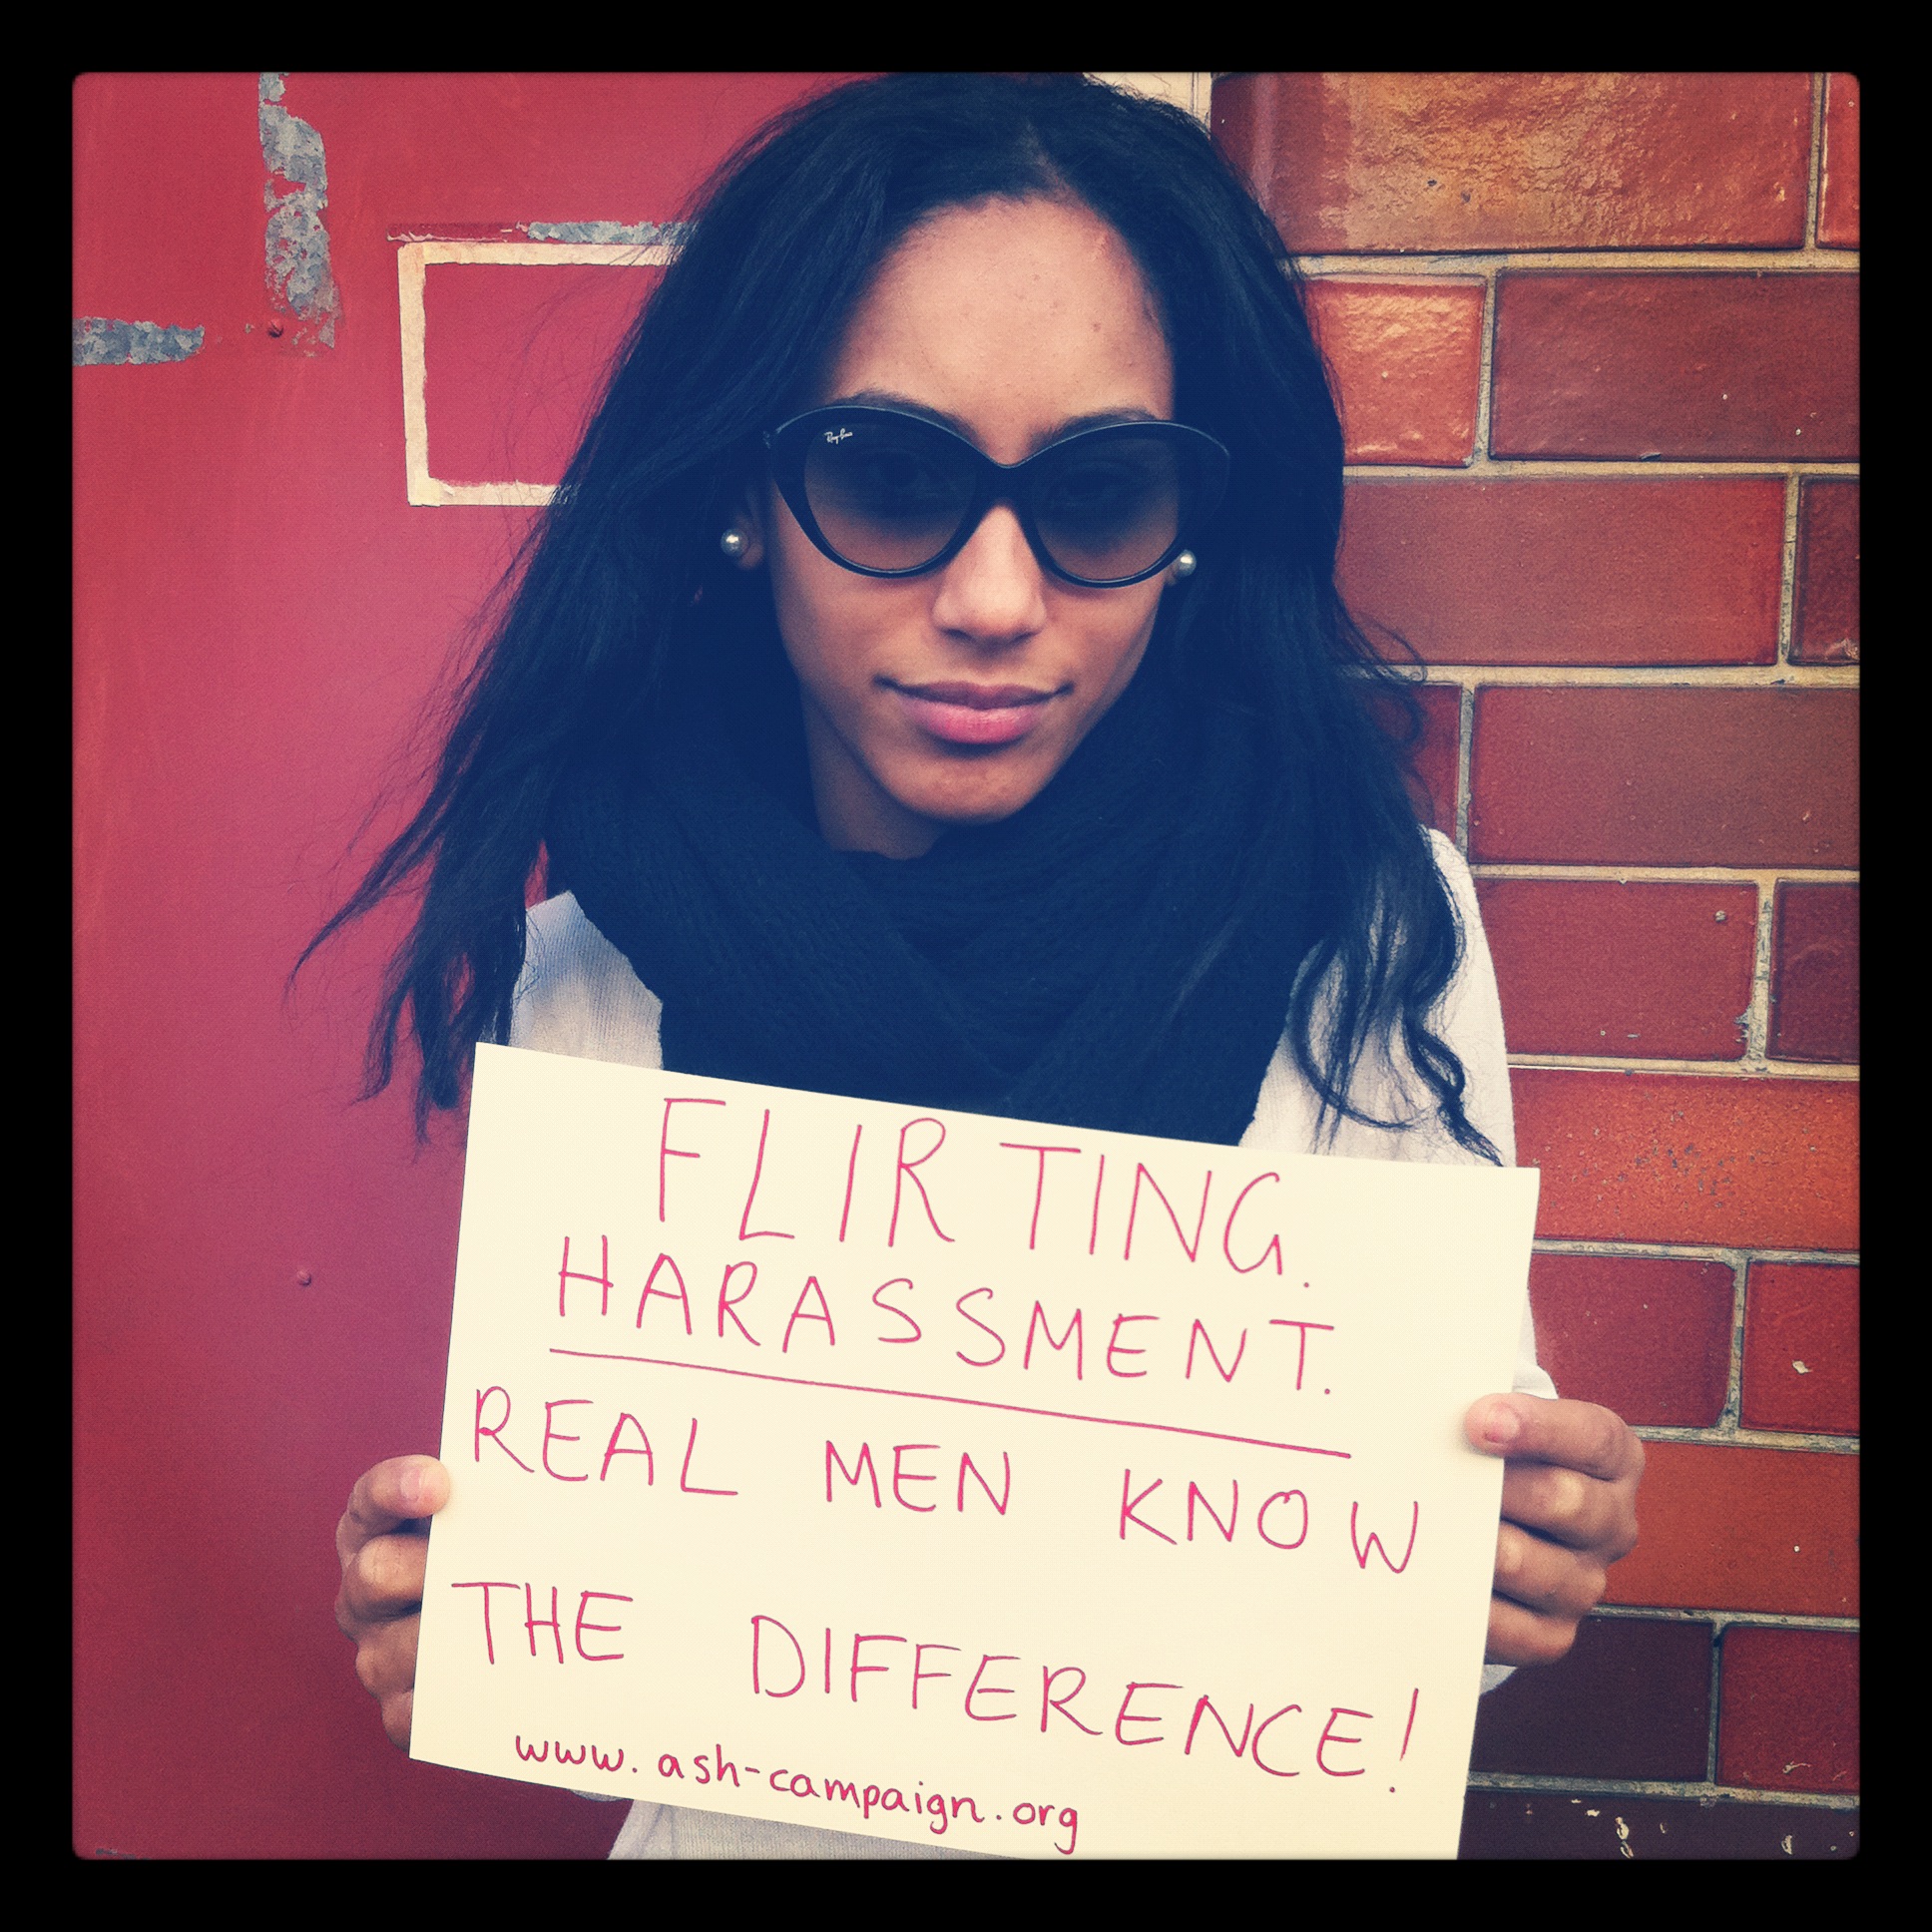 Ray-Ban
FLIRTING.
HARASSMENT.
REAL MEN KNOW
THE DIFFERENCE!
www.ash-campaign.org